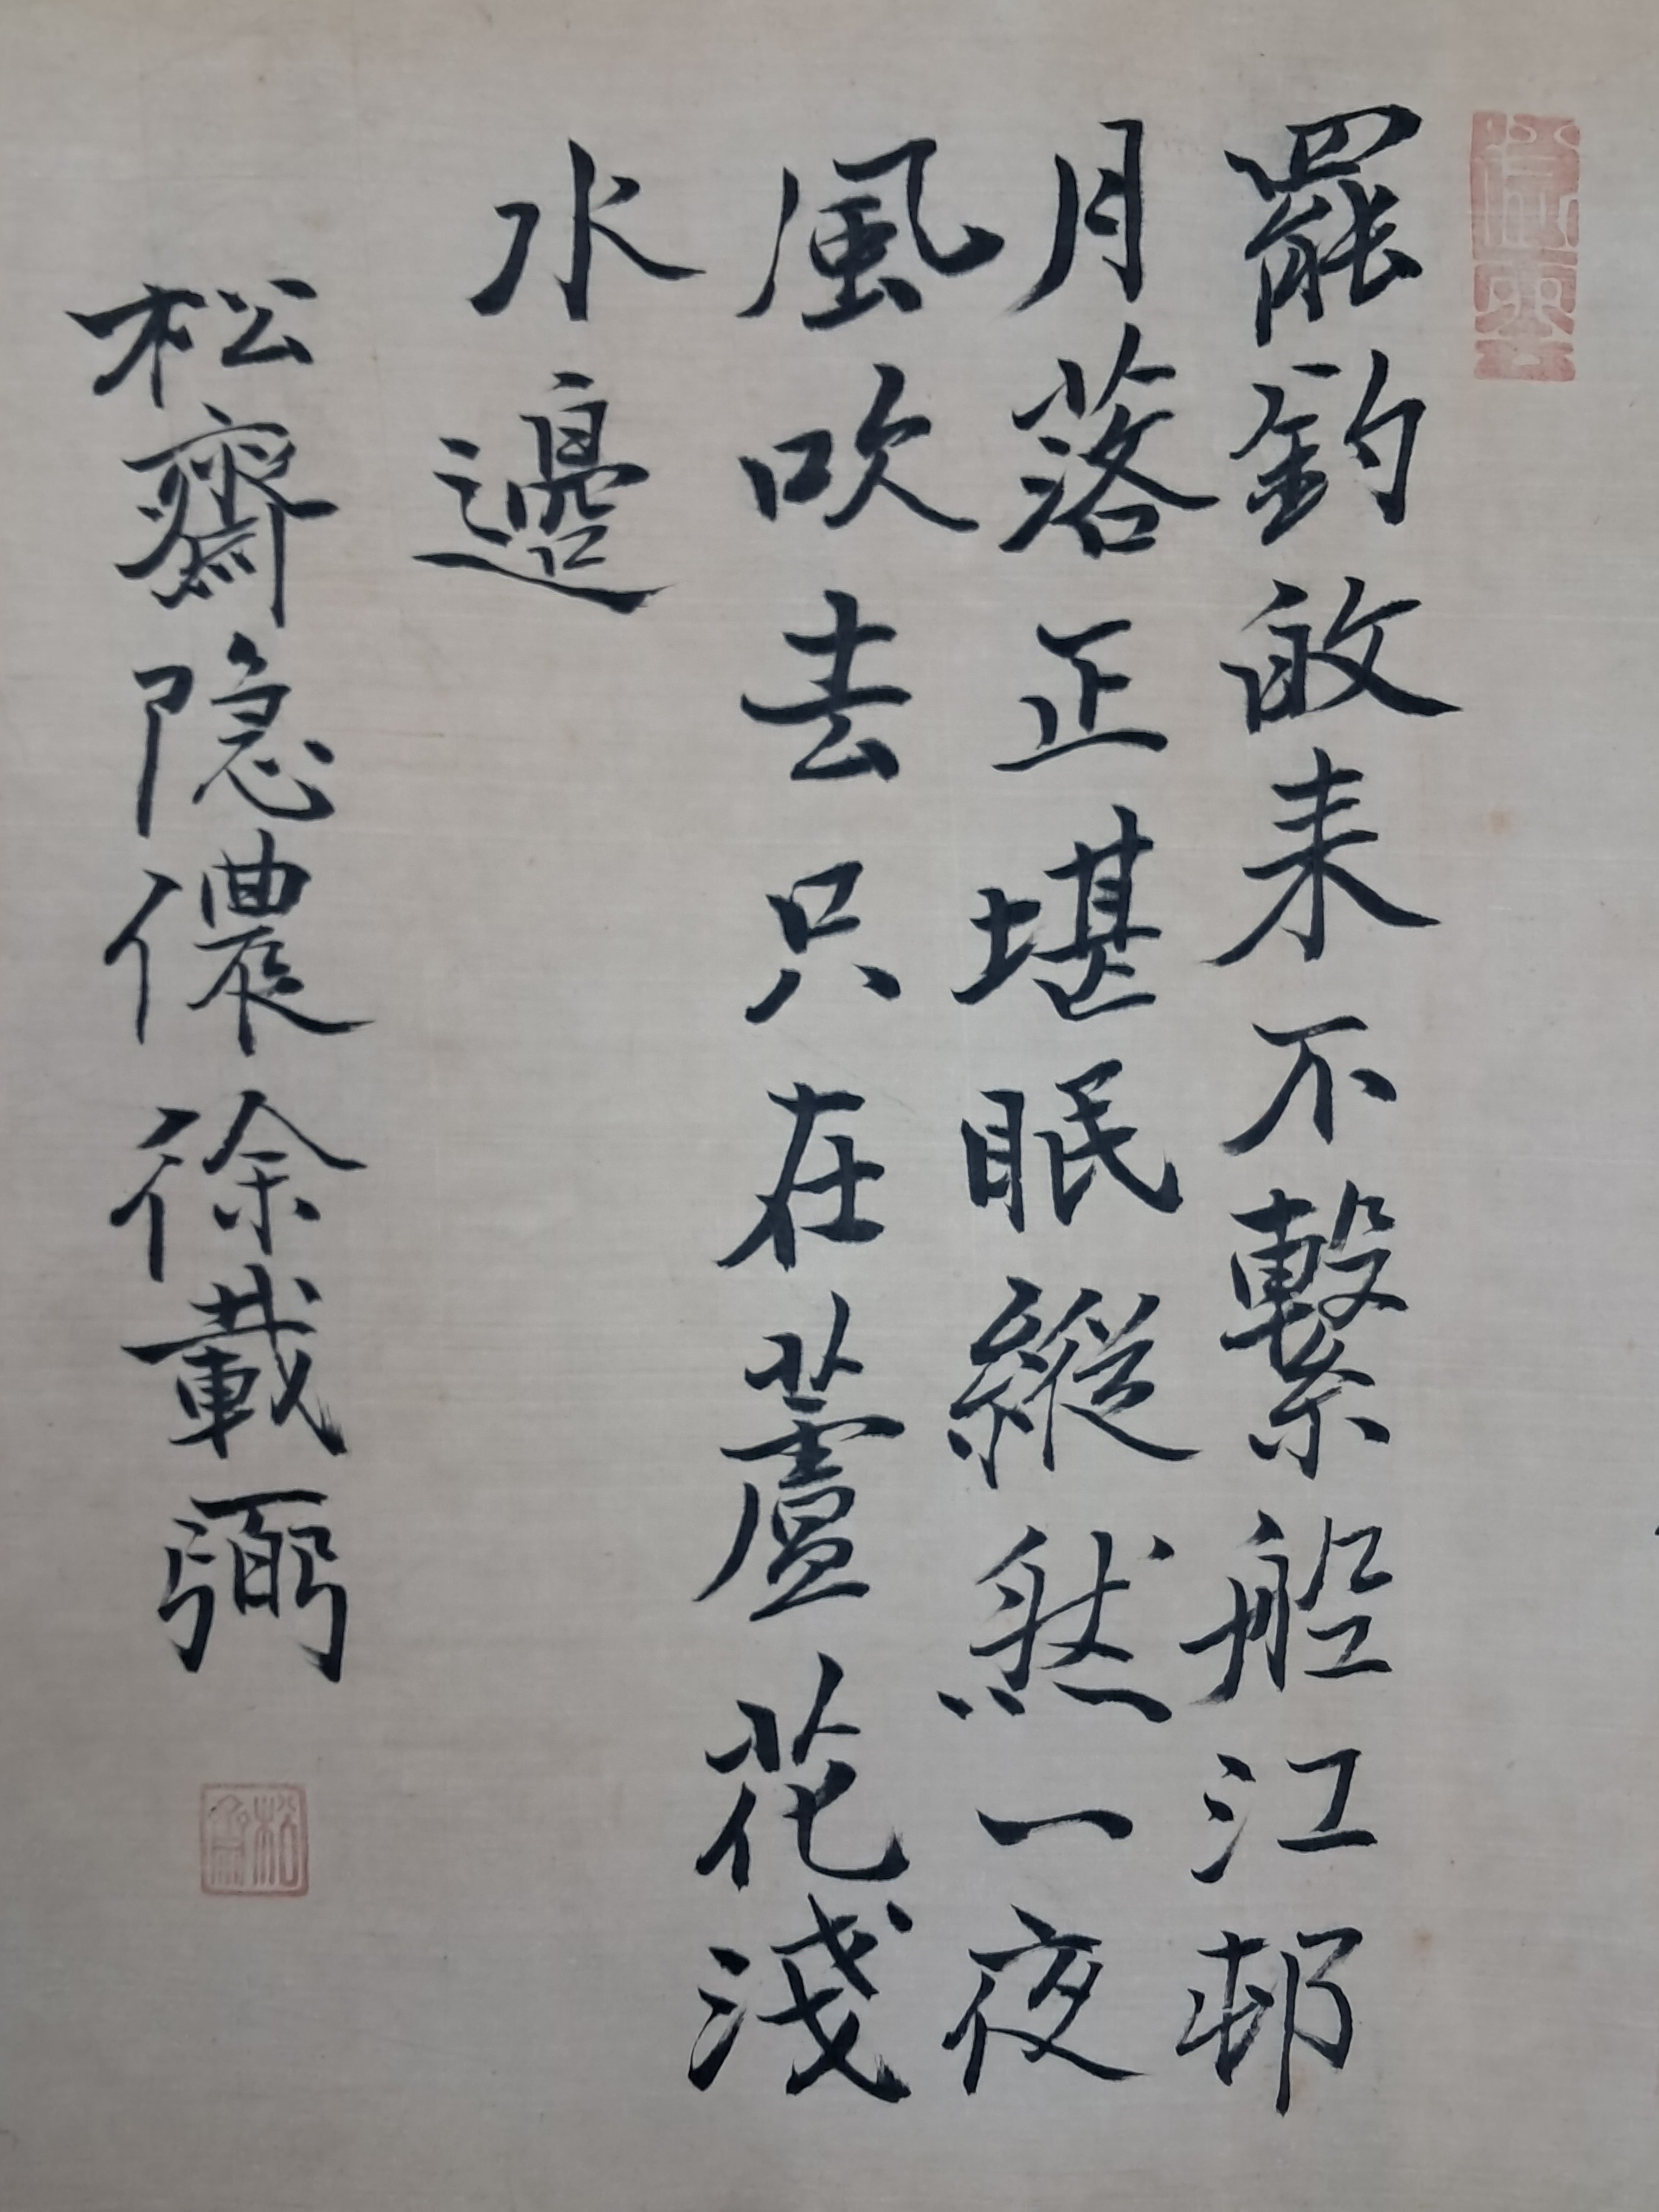 罷釣敀来不繫船江邨
月落正堪眠縱然一夜
風吹去只在蘆花淺
水邊
松齋隐儂徐載弼